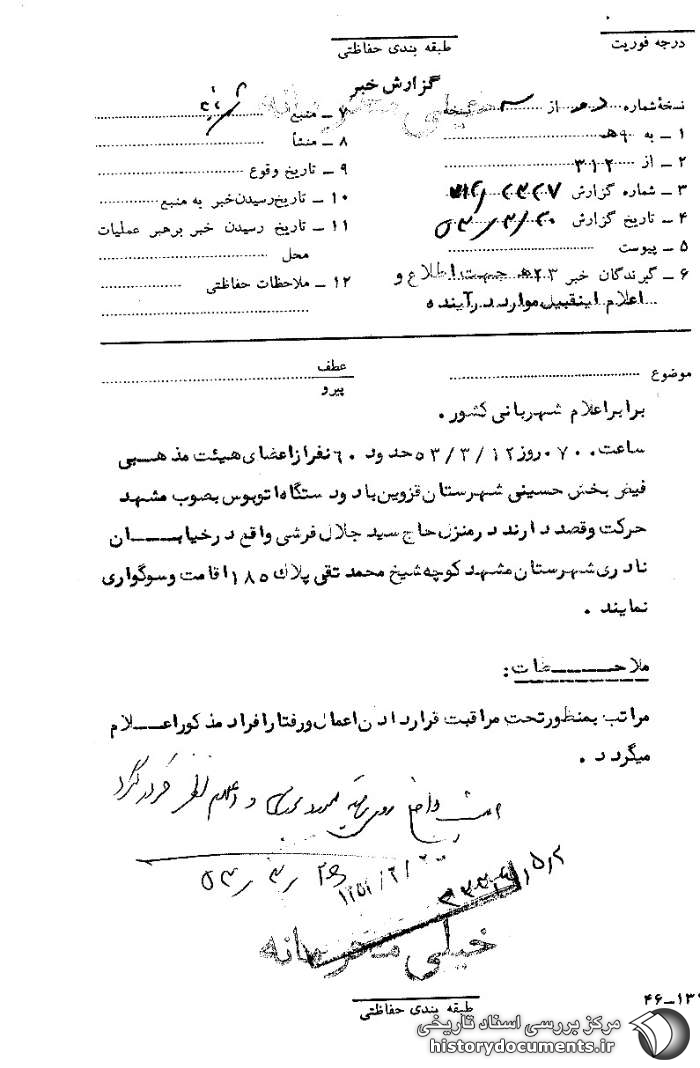 درجه فوریت
طبقه بندی حفاظتی
گزارش خبر
خیلی محرمانه
نسخهٔ شماره دو از ۳ نسخه
۱ ـ به ۹هـ
۲ ـ از ۳۱۲
۳ ـ شماره گزارش
۴ ـ تاریخ گزارش ۵۳/۳/۲۰
۵ ـ پیوست
۶ ـ گیرندگان خبر جهت اطلاع و
اعلام اینقبیل موارد درآینده
۷ ـ منبع
۸ ـ منشأ
۹ ـ تاریخ وقوع
۱۰ ـ تاریخ رسیدن خبر به منبع
۱۱ ـ تاریخ رسیدن خبر برهبر عملیات
محل
۱۲ ـ ملاحظات حفاظتی
موضوع
عطف
پیرو
برابر اعلام شهربانی کشور .
ساعت ۰۷۰۰ روز ۵۳/۳/۱۲ حدود ۶۰ نفر از اعضای هیئت مذهبی
فیض بخش حسینی شهرستان قزوین با دو دستگاه اتوبوس بصوب مشهد
حرکت و قصد دارند در منزل حاج سید جلال فرشی واقع در خیابان
نادری شهرستان مشهد کوچه شیخ محمد تقی پلاک ۱۸۵ اقامت و سوگواری
نمایند .
ملاحظات :
مراتب بمنظور تحت مراقبت قرار دادن اعمال و رفتار افراد مذکور اعلام
میگردد .
خیلی محرمانه
طبقه بندی حفاظتی
مرکز بررسی اسناد تاریخی
historydocuments.ir